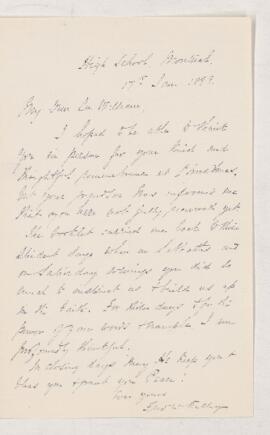 High School, Montreal.
17th Jan. 1899.
My dear Sir William,
I hoped to be able to thank
you in person for your kind and
thoughtful remembrance at Christmas,
but your grandson has informed me
that you are not fully recovered yet.
The booklet carried me back to those
student days when on Sabbaths and
on Saturday evenings you did so
much to instruct us & build us up
in the faith. For those days & for the
power of your words & example I am
profoundly thankful.
In closing days may He keep you &
bless you & grant you Peace!
Ever yours